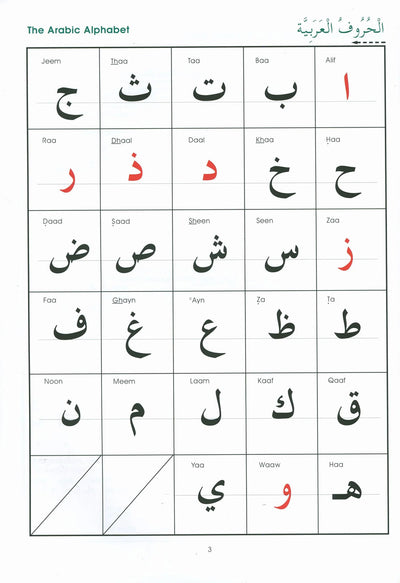 The Arabic Alphabet الْحُرُوفُ الْعَرَبِيَّة
Jeem Thaa Taa Baa Alif
ا ب ت ث ج
Raa Dhaal Daal Khaa Ḥaa
ح خ د ذ ر
Ḍaad Ṣaad Sheen Seen Zaa
ز س ش ص ض
Faa Ghayn ʿAyn Ẓa Ṭa
ط ظ ع غ ف
Noon Meem Laam Kaaf Qaaf
ق ك ل م ن
Yaa Waaw Haa
هـ و ي
3